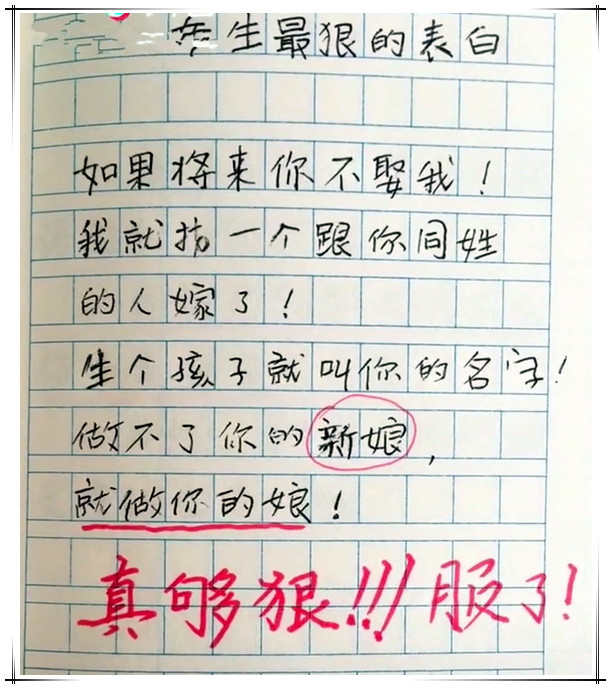 生最狠的表白
如果将来你不娶我！
我就找一个跟你同姓
的人嫁了！
生个孩子就叫你的名字！
做不了你的新娘，
就做你的娘！
真够狠!!!服了!